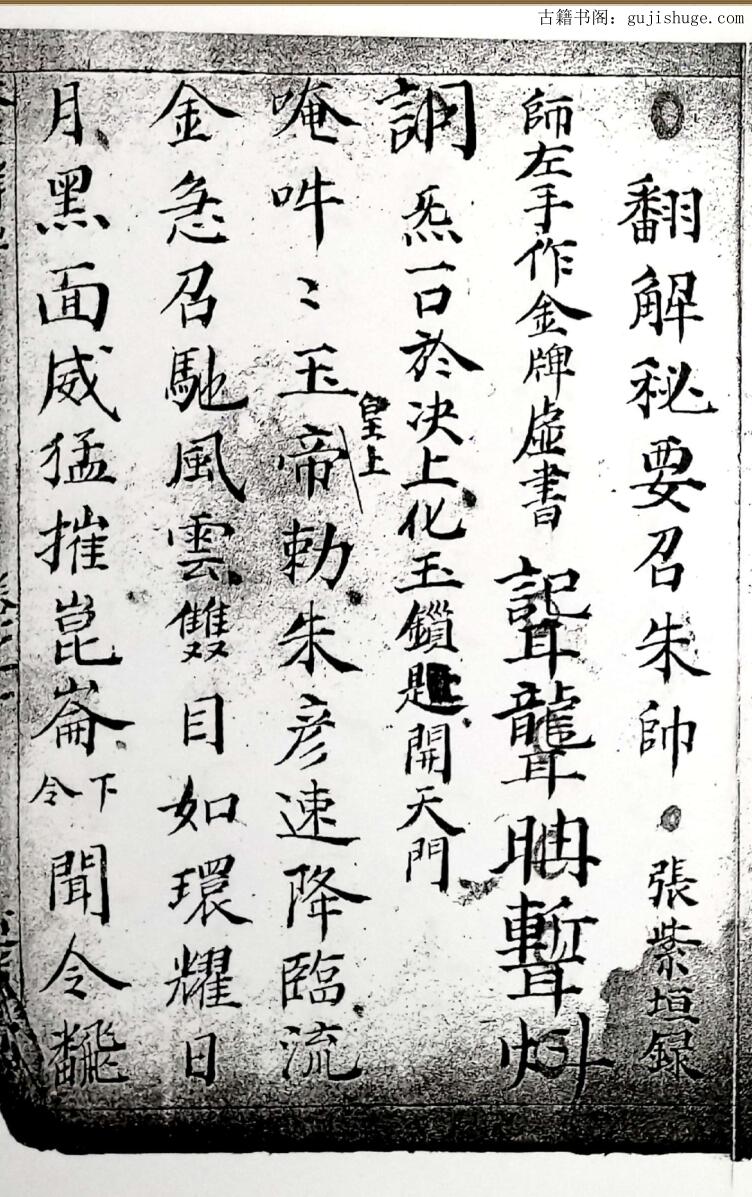 古籍书阁：gujishuge.com
翻解秘要召朱帥 張紫垣録
師左手作金牌虛書
詷 炁一口於决上化玉鎖匙開天門
唵吽〻玉帝勅朱彦速降臨流
皇上
金急召馳風雲雙目如環耀日
月黑面威猛摧崑崙 令下 聞令飜